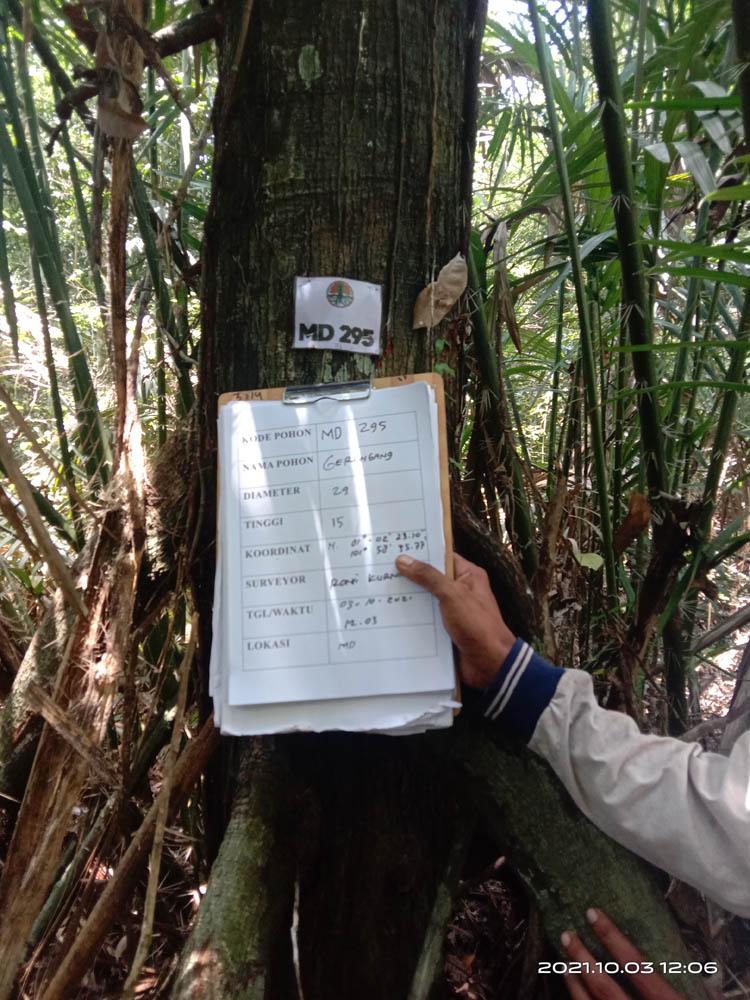 MD 295
KODE POHON MD 295
NAMA POHON GERUNGGANG
DIAMETER 29
TINGGI 15
KOORDINAT N. 01° 02' 23.10"
101° 50' 35.77
SURVEYOR
TGL/WAKTU 03-10-2021
12.03
LOKASI MD
2021.10.03 12:06